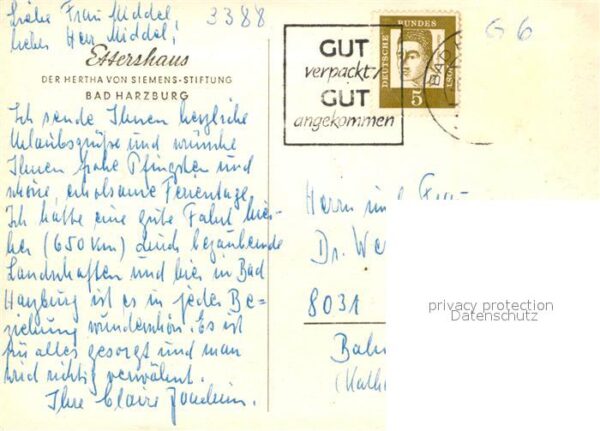 liebe Frau Middel,
lieber Herr Middel,
3388
G 6
Ettershaus
DER HERTHA VON SIEMENS-STIFTUNG
BAD HARZBURG
GUT
verpackt,
GUT
angekommen
DEUTSCHE BUNDESPOST
5
BAD
Ich sende Ihnen herzliche
Urlaubsgrüße und wünsche
Ihnen frohe Pfingsten und
schöne erholsame Ferientage.
Ich hatte eine gute Fahrt hier-
her (650 km) durch bezaubernde
Landschaften und hier in Bad
Harzburg ist es in jeder Be-
ziehung wunderschön. Es ist
für alles gesorgt und man
wird richtig verwöhnt.
Ihre Claire
Herrn und Frau
Dr. We
8031
privacy protection
Datenschutz